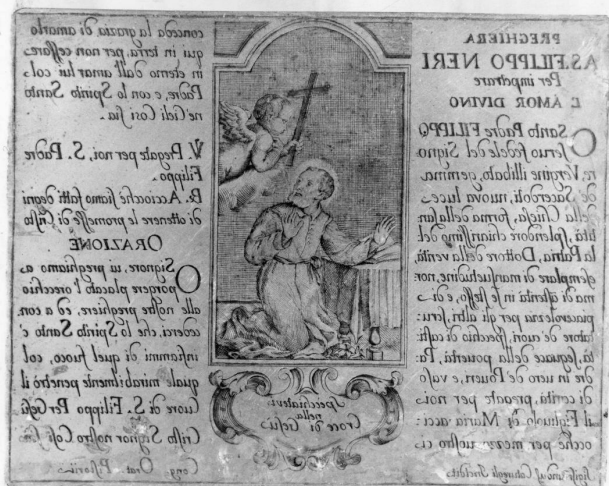 PREGHIERA
A S. FILIPPO NERI
Per impetrare
L'AMOR DIVINO
O Santo Padre FILIPPO
servo fedele del Signo-
re, Vergine illibato, gemma
de' Sacerdoti, nuova luce
della Chiesa, forma della san-
tità, splendore chiarissimo del-
la Patria, Dottore della verità,
esemplare di mansuetudine, nor-
ma di in se stesso, e di
piacevolezza per gli altri, scru-
tatore de' cuori, specchio di casti-
tà, seguace della povertà, Pa-
dre in vero de' Poveri, e vaso
di carità, pregate per noi
il Figliuolo di Maria acci-
occhè per mezzo vostro ci
Specchiatevi
nella
Croce di Giesù
conceda la grazia di amarlo
qui in terra, per non cessare
in eterno dall'amar lui col
Padre, e con lo Spirito Santo
ne' Cieli Così sia.
V. Pregate per noi, S. Padre
Filippo.
R. Acciocchè siamo fatti degni
di ottenere le promesse di Cristo
ORAZIONE
O Signore, vi preghiamo a
porgere placato l'orecchio
alle nostre preghiere, ed a con-
cederci, che lo Spirito Santo c'
infiammi di quel fuoco, col
quale mirabilmente penetrò il
Cuore di S. Filippo Per Gesù
Cristo Signor nostro Così sia
Cong. Orat. Pistorii